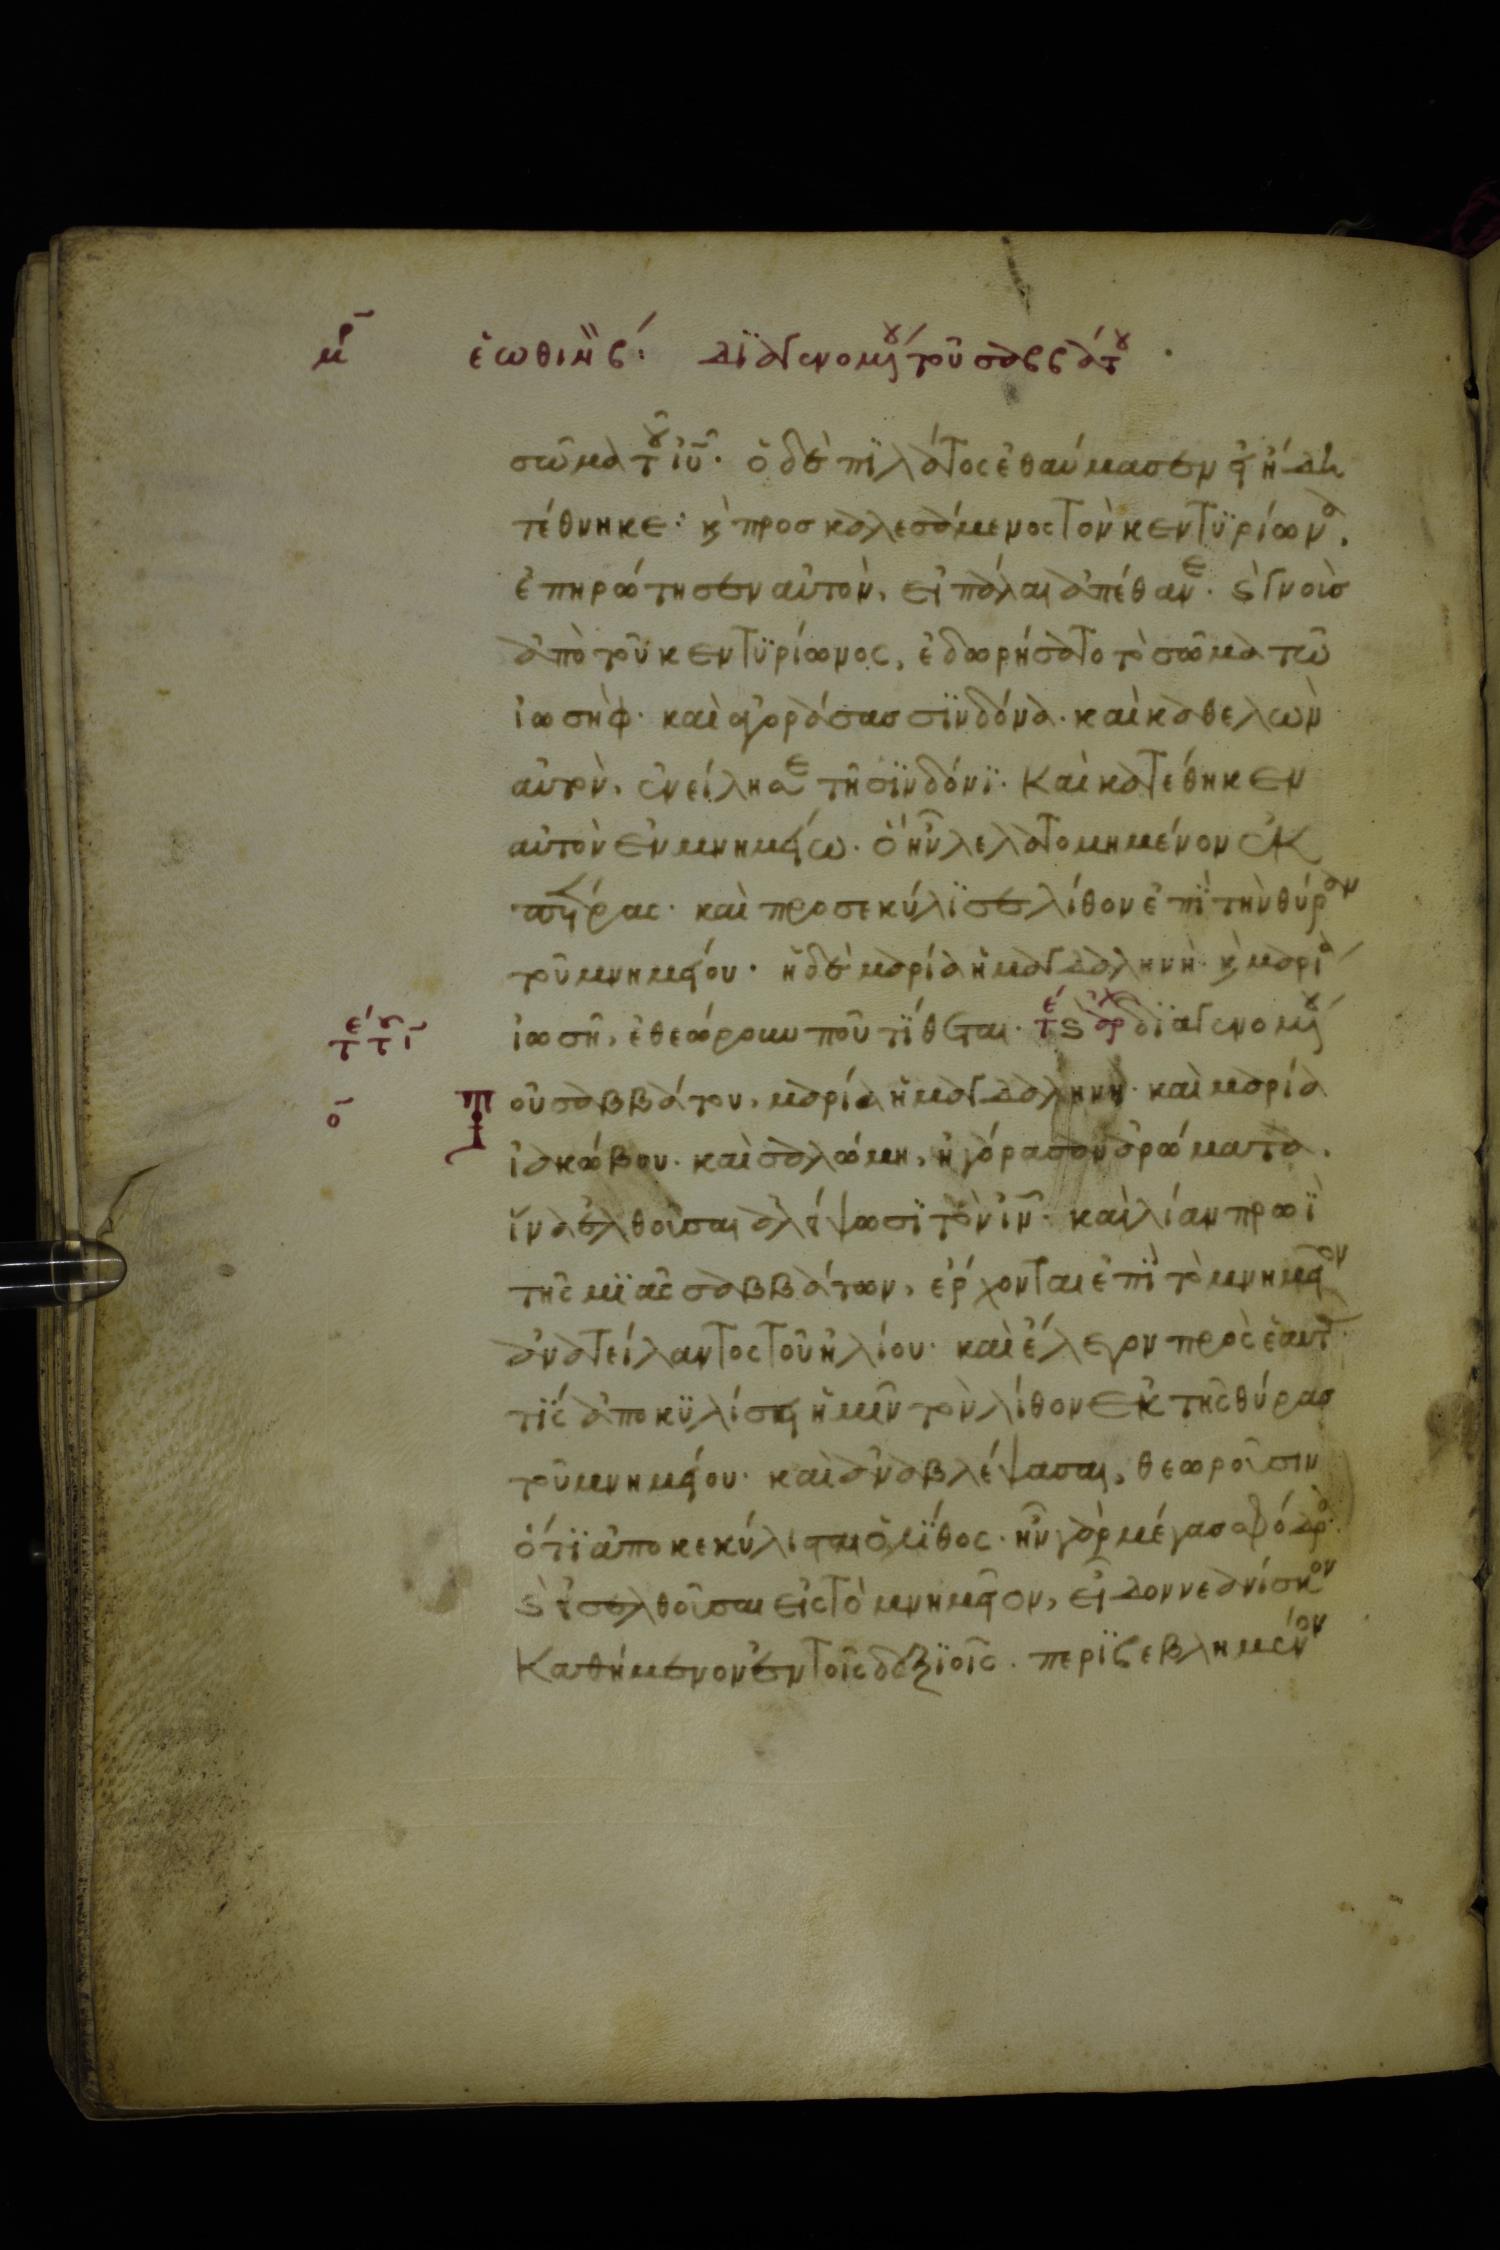 ἑωθινὸν β΄: διαγενομ΄ τοῦ σαββάτου
σῶμα τοῦ ἰῦ· ὁ δὲ πιλάτος ἐθαύμασεν εἰ ἤδη
τέθνηκε· κ προσκαλεσάμενος τὸν κεντυρίωνα,
ἐπηρώτησεν αὐτὸν, εἰ πάλαι ἀπέθανε· κ γνοὺσ
ἀπὸ τοῦ κεντυρίωνος, ἐδωρήσατο τὸ σῶμα τῶ
ἰωσὴφ· καὶ ἀγοράσασ σϊνδόνα· καὶ καθελὼν
αὐτὸν, ἐνείλησε τῆ σϊνδόνϊ· Καὶ κατέθηκεν
αὐτὸν ἐν μνημείω· ὃ ἦν λελατομημένον ἐκ
πέτρας· καὶ προσεκύλϊσε λίθον ἐπϊ τὴν θύραν
τοῦ μνημείου· ἡ δὲ μαρία ἡ μαγδαληνὴ· κ μαρία
ἰωσῆ, ἐθεώρουν ποῦ τίθεται· διαγενομου
Τοῦ σαββάτου, μαρία ἡ μαγδαληνὴ· καὶ μαρία
ἰακώβου· καὶ σαλώμη, ἠγόρασαν ἀρώματα,
ἵνα ἐλθοῦσαι ἀλείψωσϊ τὸν ἰν· καὶ λίαν πρωϊ
τῆς μϊᾶς σαββάτων, ἔρχονται ἐπϊ τὸ μνημεῖον
ἀνατείλαντος τοῦ ἡλίου· καὶ ἔλεγον πρὸς ἑαυτ
τίς ἀποκϋλίσει ἡμῖν τὸν λίθον ἐκ τῆς θύρασ
τοῦ μνημείου· καὶ ἀναβλέψασαι, θεωροῦσιν
ὅτϊ ἀποκεκύλισται ὁ λίθος· ἦν γὰρ μέγασ σφόδρα
κ εἰσελθοῦσαι εἰς τὸ μνημεῖον, εἶδον νεανίσκον
Καθήμενον ἐν τοῖς δεξϊοῖς· περϊβεβλημένον